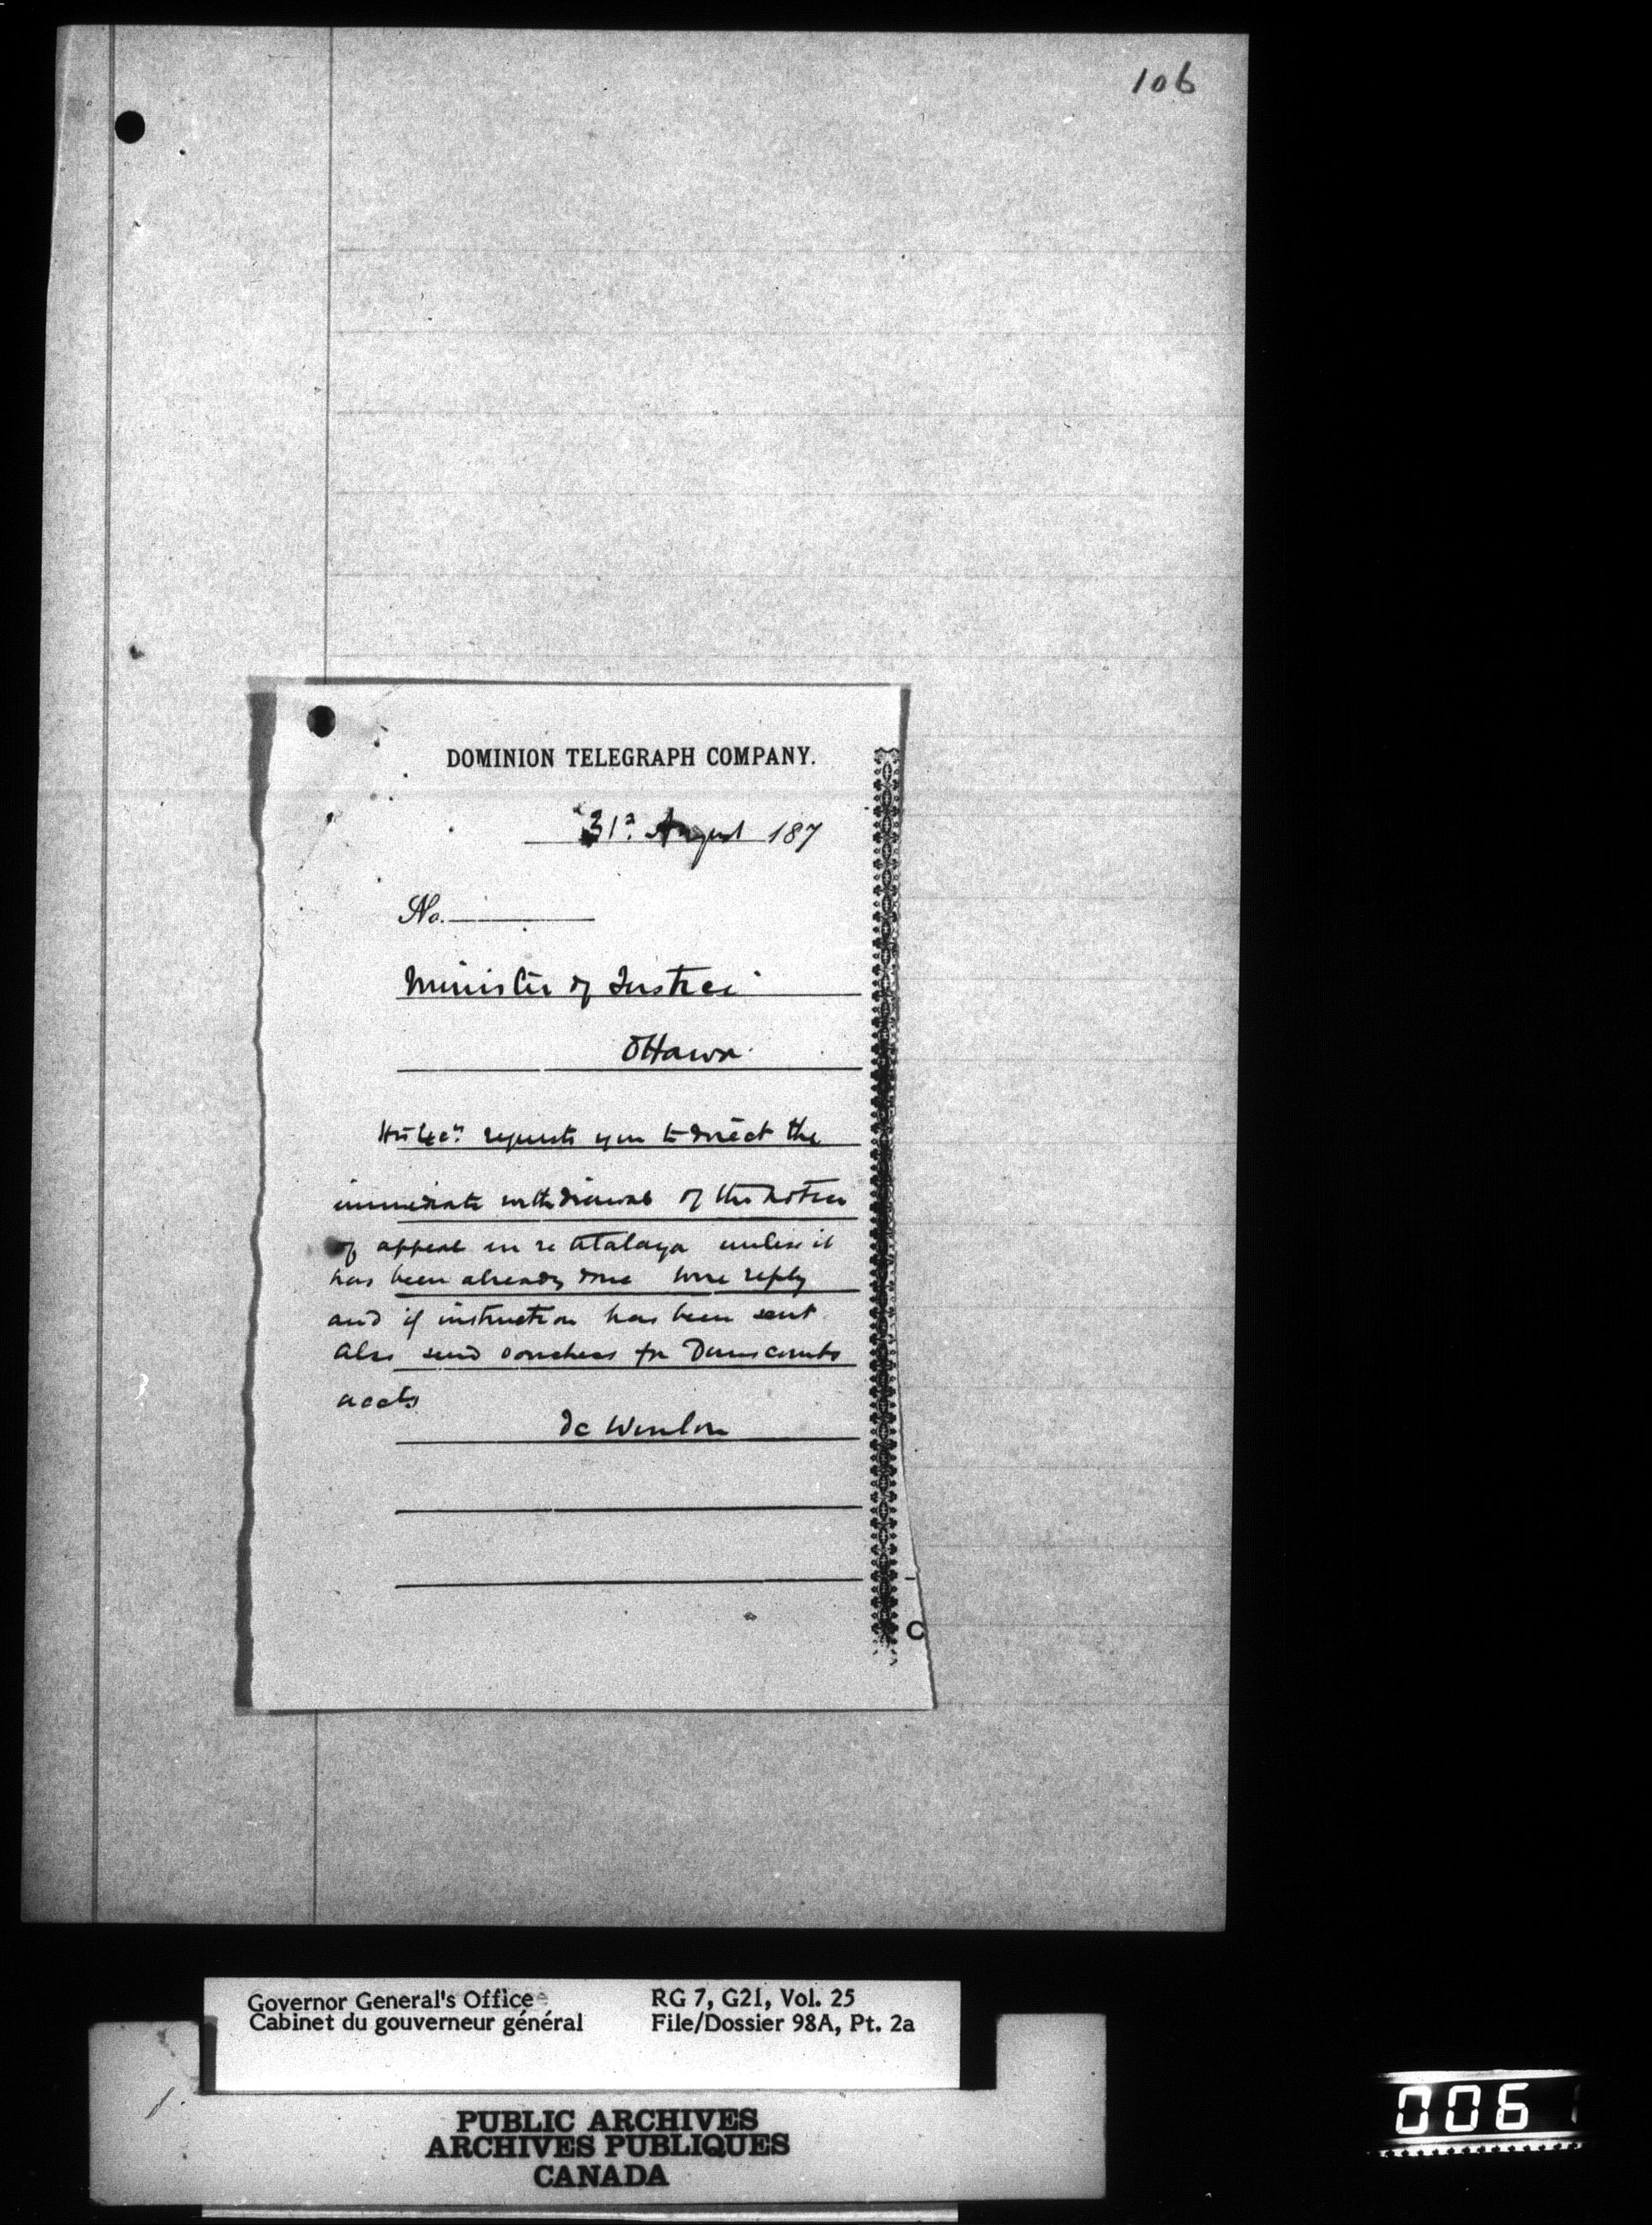 106
DOMINION TELEGRAPH COMPANY.
31st August 187
No.
Minister of Justice
Ottawa
His Excy requests you to direct the
immediate withdrawal of the notice
of appeal in re Atalaya unless it
has been already done wire reply
and if instruction has been sent
Also send vouchers for Dunscombs
accts
de Winton
C
Governor General's Office
Cabinet du gouverneur général
RG 7, G21, Vol. 25
File/Dossier 98A, Pt. 2a
PUBLIC ARCHIVES
ARCHIVES PUBLIQUES
CANADA
006